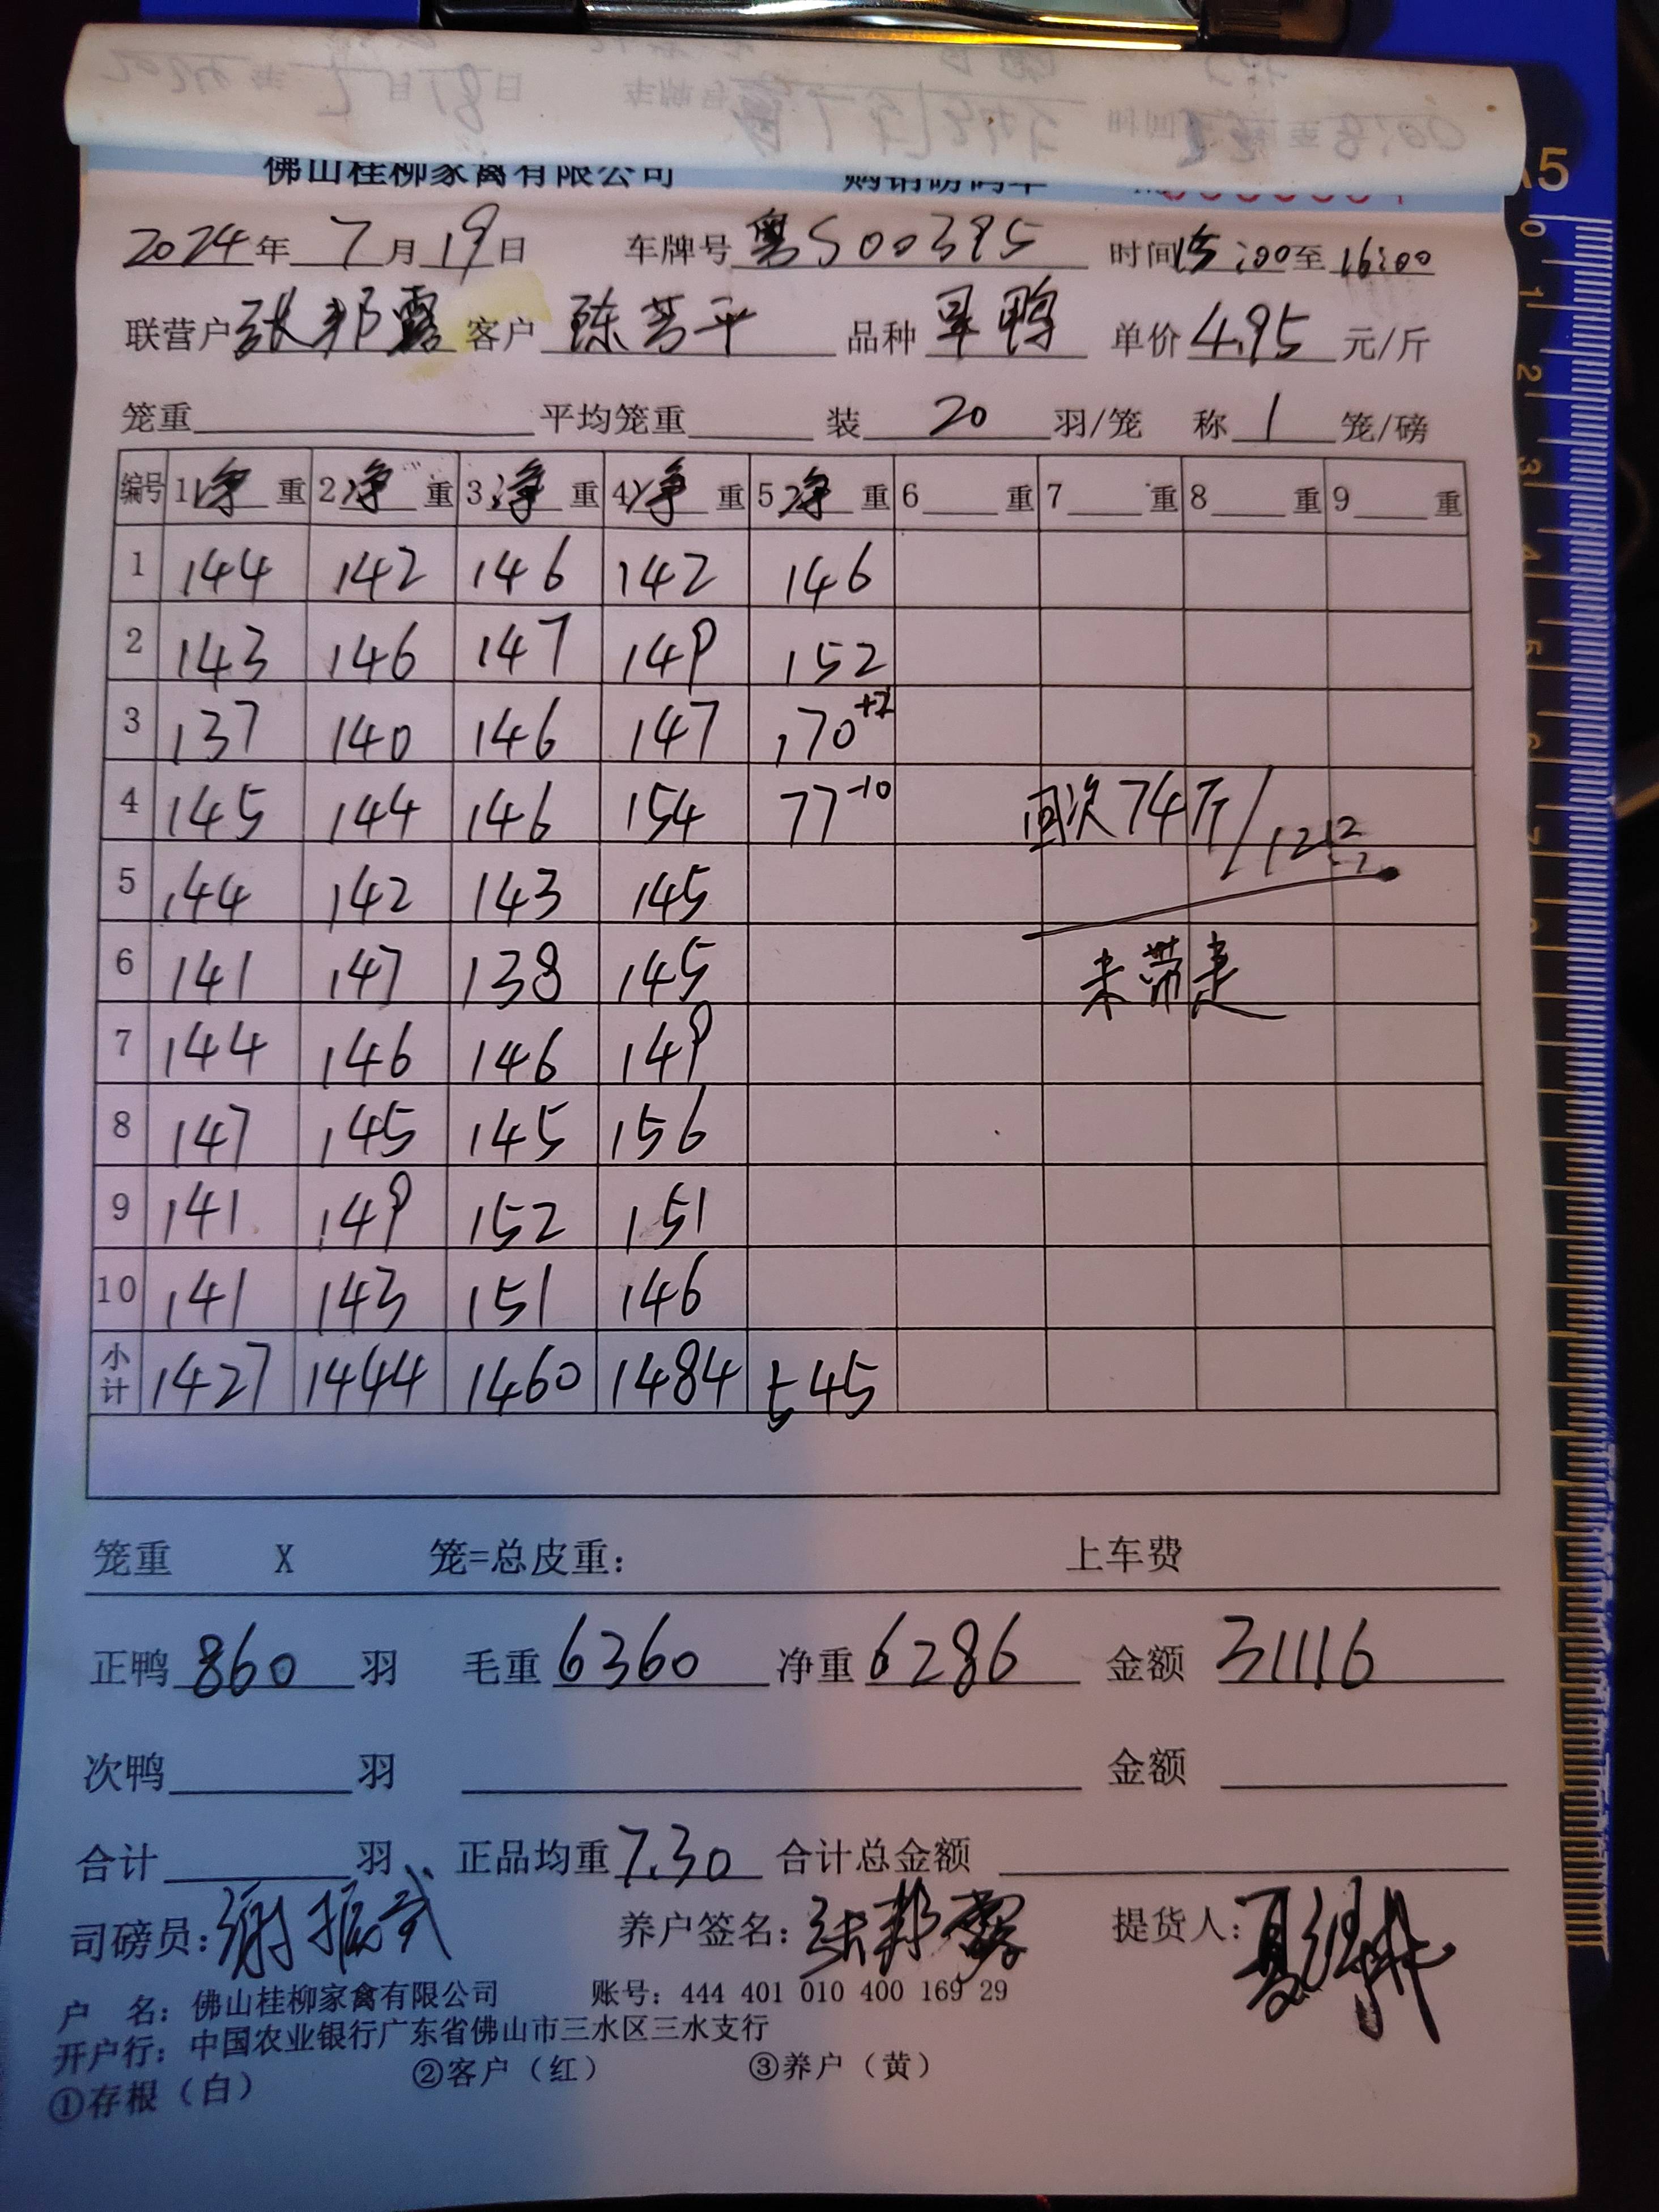 佛山桂柳家禽有限公司 购销磅码单
2024年 7月 19日 车牌号 粤S00395 时间 15:00 至 16:00
联营户 张邦露 客户 陈芳平 品种 旱鸭 单价 4.95 元/斤
笼重 平均笼重 装 20 羽/笼 称 1 笼/磅
编号 1 净 重 2 净 重 3 净 重 4 净 重 5 净 重 6 重 7 重 8 重 9 重
1 144 142 146 142 146
2 143 146 147 149 152
3 137 140 146 147 170 +2
4 145 144 146 154 77 -10 回次74斤/12只
5 144 142 143 145
6 141 147 138 145 未带走
7 144 146 146 149
8 147 145 145 156
9 141 149 152 151
10 141 143 151 146
小计 1427 1444 1460 1484 545
笼重 X 笼=总皮重: 上车费
正鸭 860 羽 毛重 6360 净重 6286 金额 31116
次鸭 羽 金额
合计 羽 正品均重 7.30 合计总金额
司磅员: 谢振武 养户签名: 张邦露 提货人:
户 名: 佛山桂柳家禽有限公司 账号: 444 401 010 400 169 29
开户行: 中国农业银行广东省佛山市三水区三水支行
①存根（白） ②客户（红） ③养户（黄）